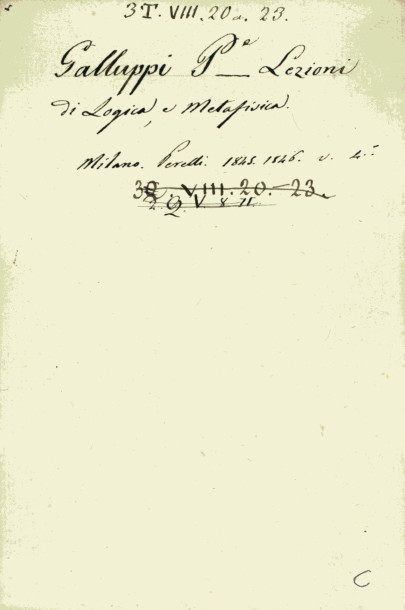 3 T. VIII. 20 a. 23.
Galluppi P.e — Lezioni
di Logica, e Metafisica.
Milano. Perelli. 1845. 1846. v. 4.
VIII. 20. 23.
C